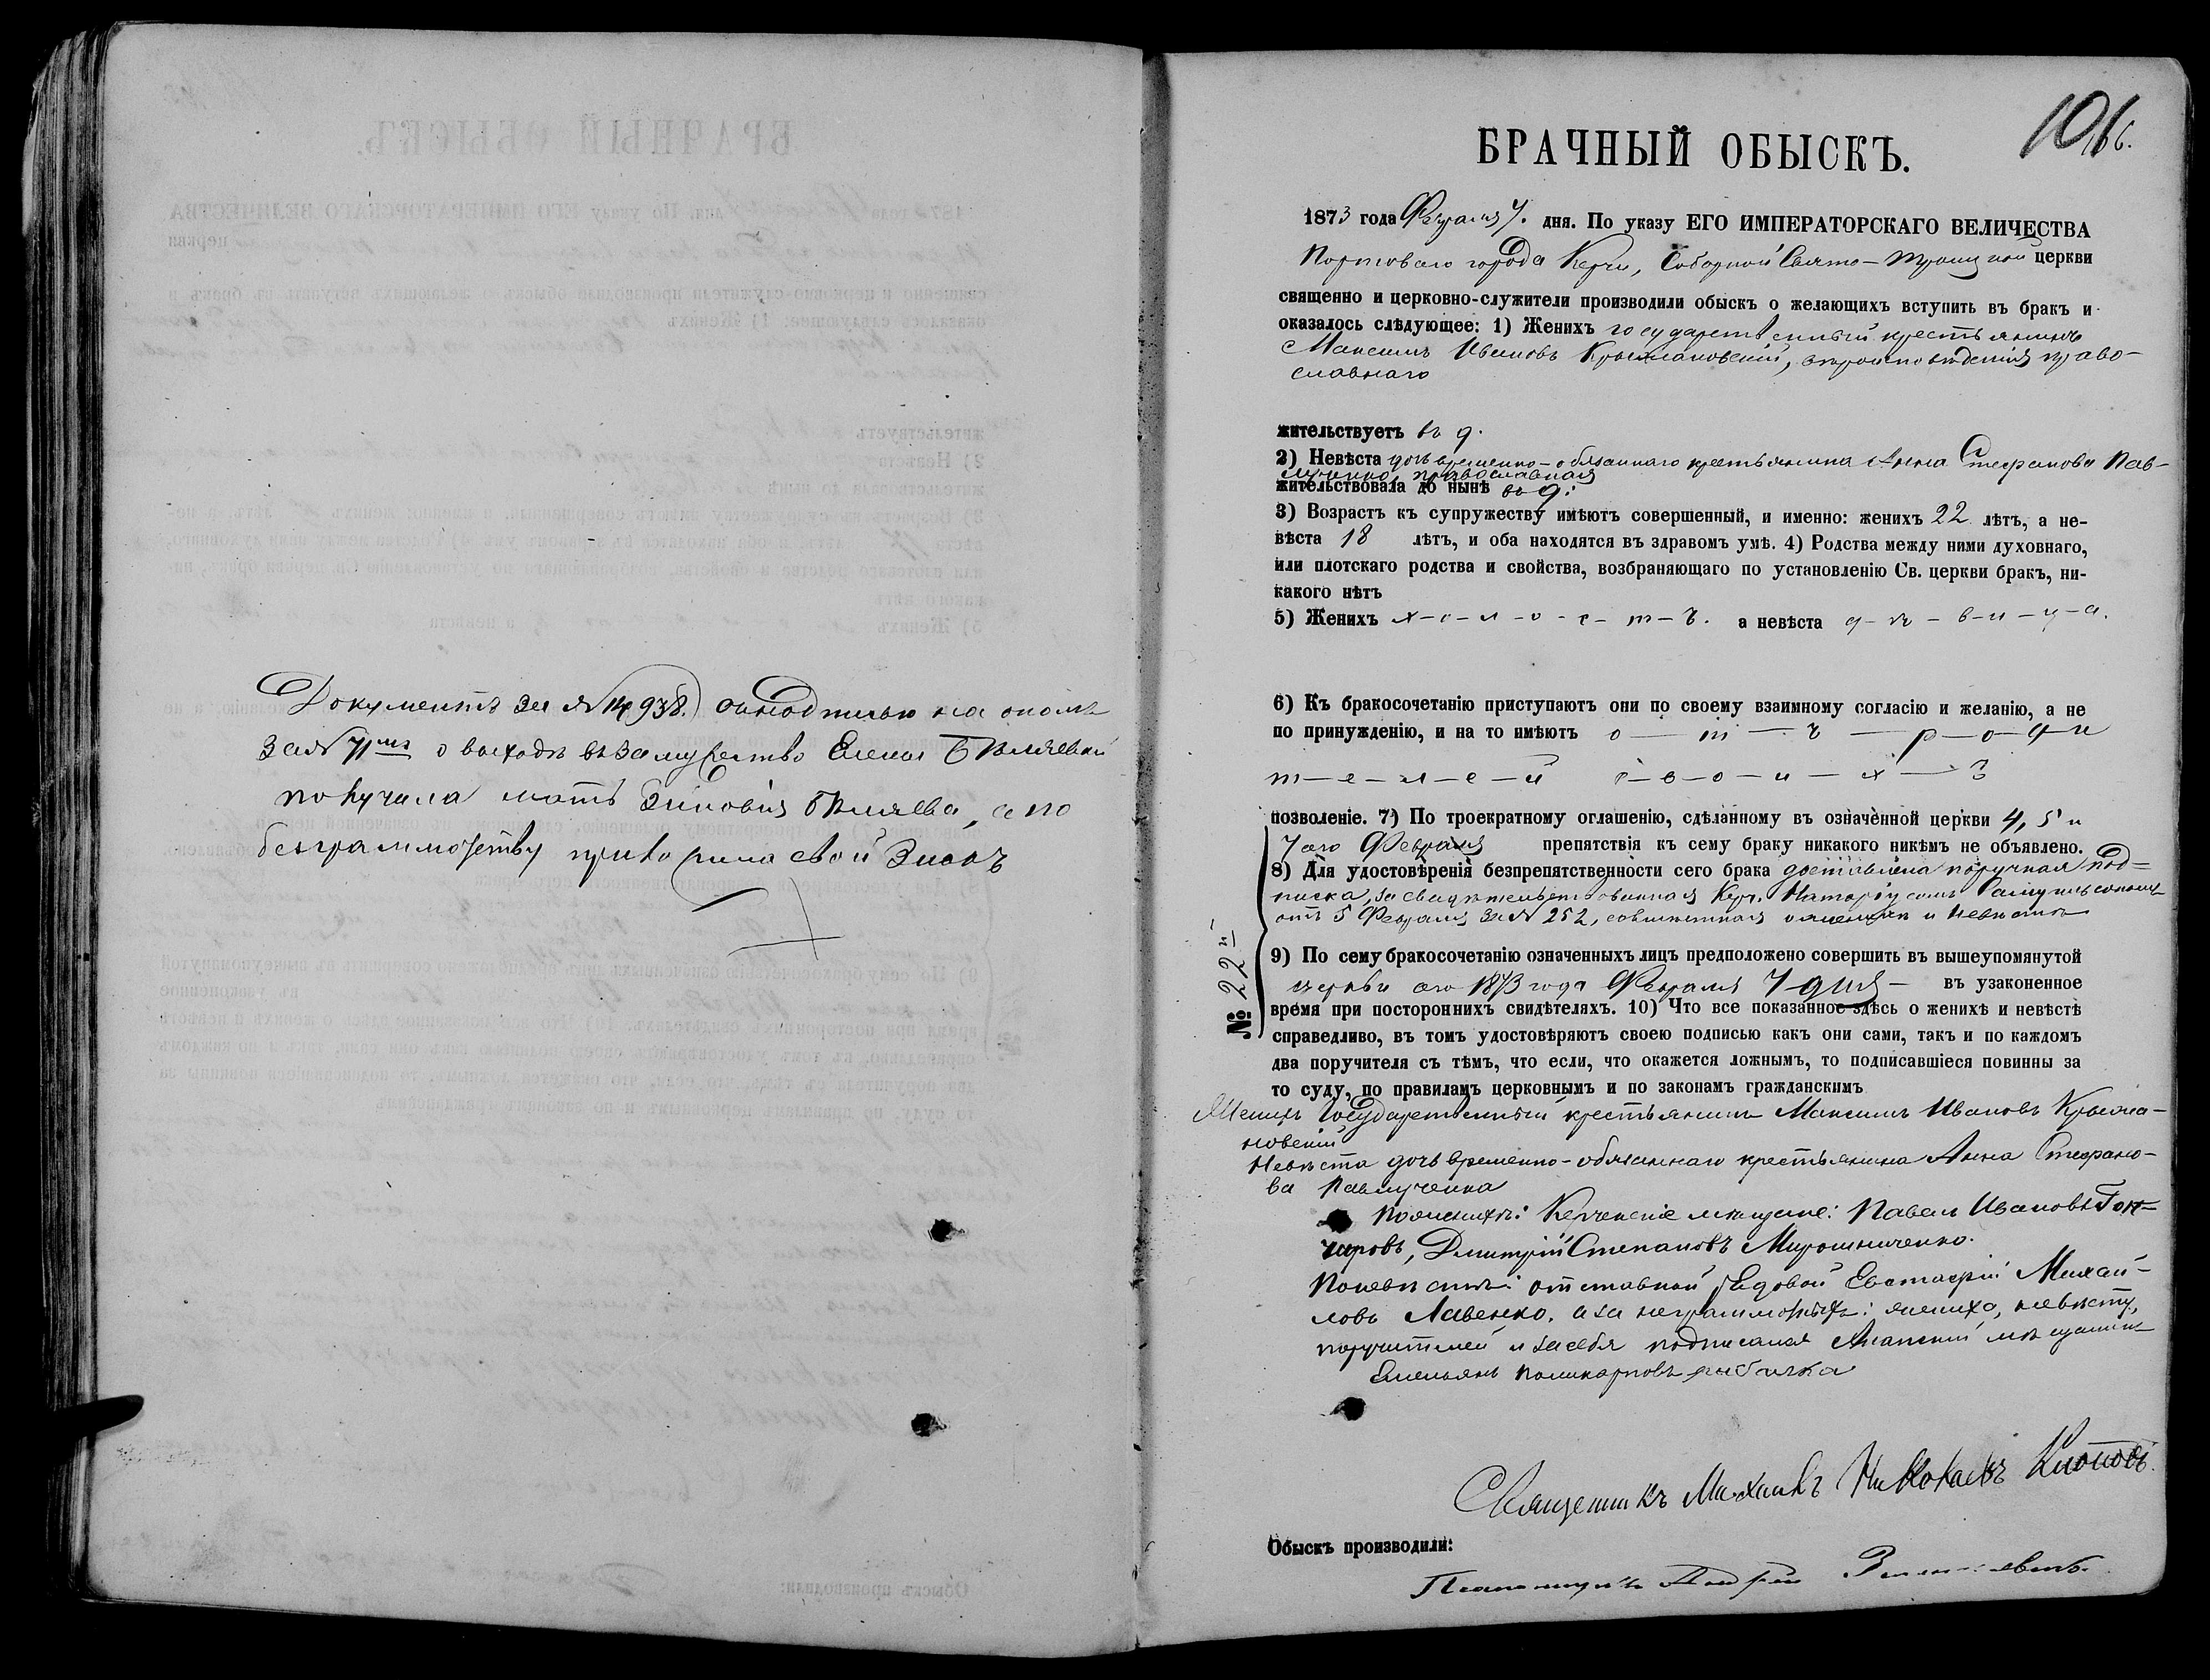 Документъ за № 14938. съ надписью на ономъ
за № 71мъ о выходѣ въ замужество Елены Бѣляевой
получила мать Зиновія Бѣляева, а по
безграмотству приложила свой знакъ
+
106.
БРАЧНЫЙ ОБЫСКЪ.
1873 года Февраля 7. дня. По указу ЕГО ИМПЕРАТОРСКАГО ВЕЛИЧЕСТВА
Портоваго города Керчи, Соборной Свято-Троицкой церкви
священно и церковно-служители производили обыскъ о желающихъ вступить въ бракъ и
оказалось слѣдующее: 1) Женихъ государственный крестьянинъ
Максимъ Ивановъ Крыжановскій, вѣроисповѣданія право-
славнаго
жительствуетъ въ
2) Невѣста дочь временно-обязаннаго крестьянина Анна Стефанова Пав-
лученко, православная
жительствовала до нынѣ въ
3) Возрастъ къ супружеству имѣютъ совершенный, и именно: женихъ 22 лѣтъ, а не-
вѣста 18 лѣтъ, и оба находятся въ здравомъ умѣ. 4) Родства между ними духовнаго,
или плотскаго родства и свойства, возбраняющаго по установленію Св. церкви бракъ, ни-
какого нѣтъ
5) Женихъ х-о-л-о-с-т-ъ. а невѣста д-ѣ-в-и-ц-а.
6) Къ бракосочетанію приступаютъ они по своему взаимному согласію и желанію, а не
по принужденію, и на то имѣютъ о—т—ъ—р-о-д-и
т-е-л-е-й с-в-о-и-х-ъ
позволеніе. 7) По троекратному оглашенію, сдѣланному въ означенной церкви 4, 5 и
7 ого Февраля препятствія къ сему браку никакого никѣмъ не объявлено.
8) Для удостовѣренія безпрепятственности сего брака доставлена поручная под-
писка, засвидѣтельствованная Керч. Нотаріусомъ Самуильсономъ
отъ 5 Февраля за № 252, о женихѣ и невѣстѣ
№ 22й
9) По сему бракосочетанію означенныхъ лицъ предположено совершить въ вышеупомянутой
церкви сего 1873 года Февраля 7 дня— въ узаконенное
время при постороннихъ свидѣтеляхъ. 10) Что все показанное здѣсь о женихѣ и невѣстѣ
справедливо, въ томъ удостовѣряютъ своею подписью какъ они сами, такъ и по каждомъ
два поручителя съ тѣмъ, что если, что окажется ложнымъ, то подписавшіеся повинны за
то суду, по правиламъ церковнымъ и по законамъ гражданскимъ
Женихъ Государственный крестьянинъ Максимъ Ивановъ Крыжа-
новскій
Невѣста дочь временно-обязаннаго крестьянина Анна Стефано-
ва Павлученко
По женихѣ: Керченскіе мѣщане: Павелъ Ивановъ Гон-
чаровъ, Дмитрій Степановъ Мирошниченко.
По невѣстѣ: отставной рядовой Евстафій Михай-
ловъ Лавенко. а за неграмотныхъ: жениха, невѣсту,
поручителей и за себя подписался Анапскій мѣщанинъ
Емельянъ Поликарповъ Рыбалка
Священникъ Михаилъ Николаевъ
Обыскъ производили: